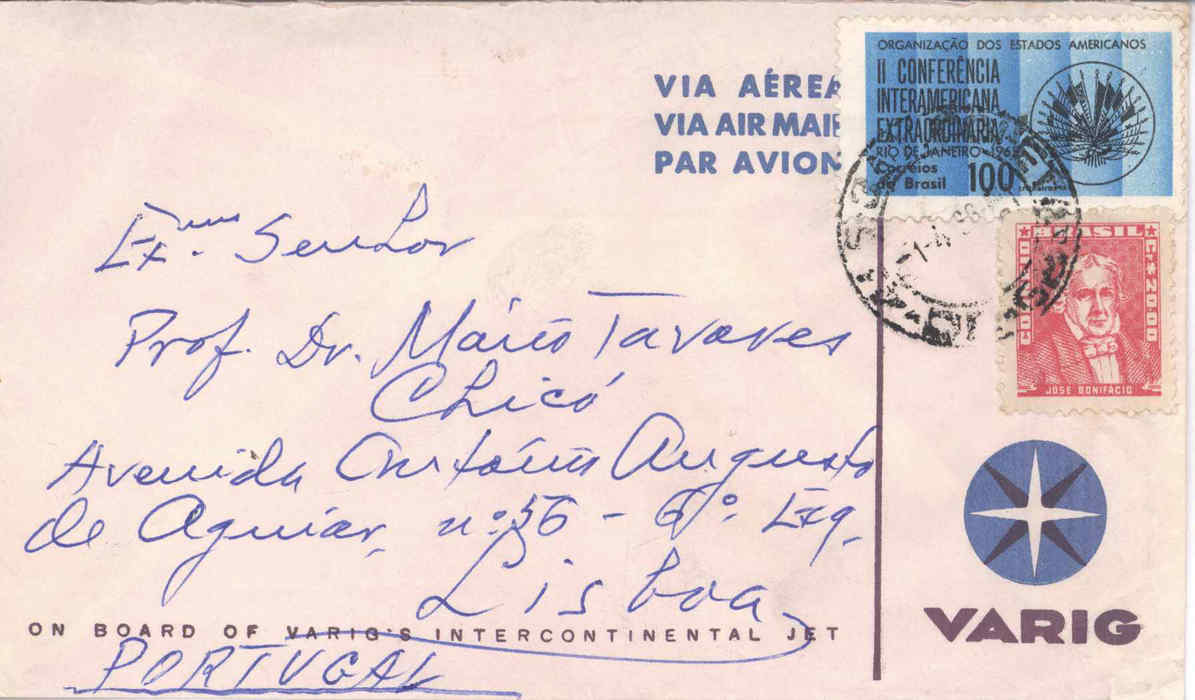 VIA AÉREA
VIA AIR MAIL
PAR AVION
ORGANIZAÇÃO DOS ESTADOS AMERICANOS
II CONFERÊNCIA
INTERAMERICANA
EXTRAORDINÁRIA
RIO DE JANEIRO-1965
Correios
do Brasil 100
BRASIL
CORREIO
CR$ 20,00
JOSE BONIFACIO
Exmo. Senhor
Prof. Dr. Mário Tavares
Chicó
Avenida António Augusto
de Aguiar, nº 56 - 6º. Esq.
Lisboa
ON BOARD OF VARIG'S INTERCONTINENTAL JET
PORTUGAL
VARIG